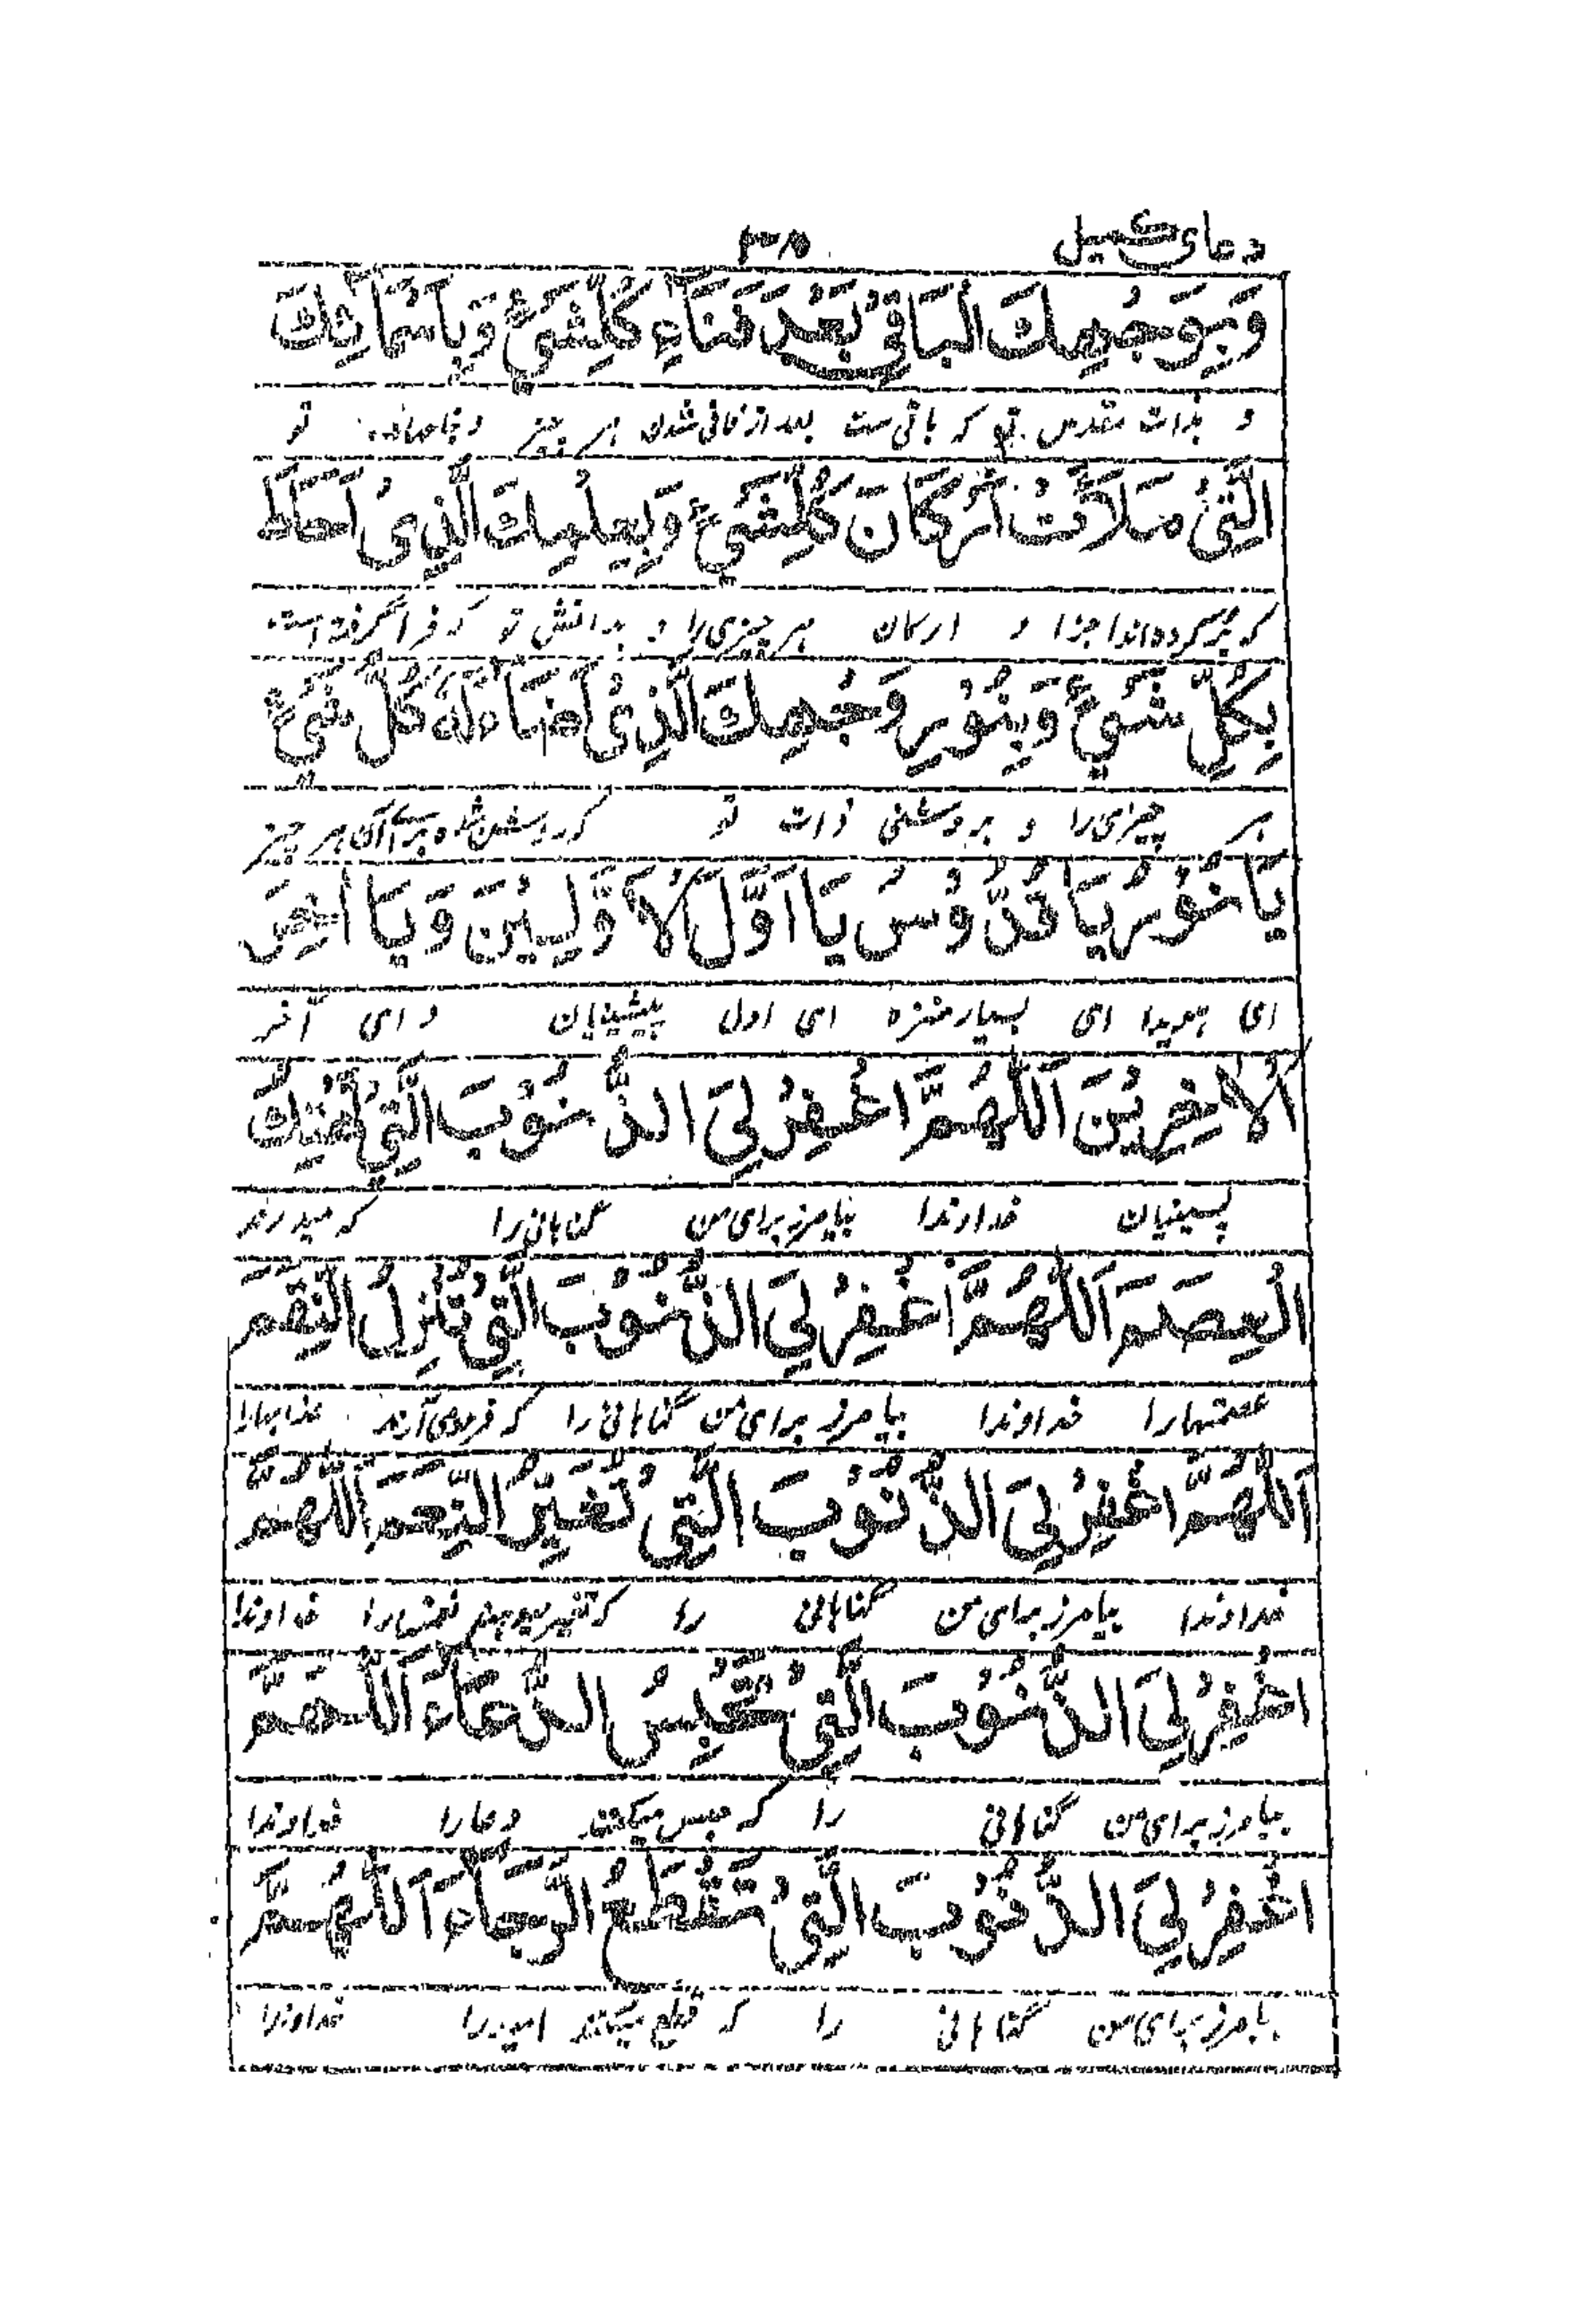 دعای کمیل
وَبِوَجْهِكَ الْبَاقِیْ بَعْدَ فَنَاءِ كُلِّشَیْءٍ وَبِاَسْمَائِكَ
و بذات مقدس تو که باقی ست بعد از فانی شدن هر چیزے و بنامهای تو
الَّتِیْ مَلَأَتْ اَرْكَانَ كُلِّشَیْءٍ وَبِعِلْمِكَ الَّذِیْ اَحَاطَ
که پر کرده اند اجزا و ارکان هر چیزی را و بدانش تو که فرا گرفته است
بِكُلِّ شَیْءٍ وَبِنُوْرِ وَجْهِكَ الَّذِیْ اَضَاءَ لَهُ كُلُّ شَیْءٍ
هر چیزی را و بروشنی ذات تو که روشن شده برای آن هر چیز
يَا نُوْرُ يَا قُدُّوْسُ يَا اَوَّلَ الْاَوَّلِيْنَ وَيَا اٰخِرَ
ای هویدا ای بسیار منزه ای اول پیشینیان و ای آخر
الْاٰخِرِيْنَ اَللّٰهُمَّ اغْفِرْ لِیَ الذُّنُوْبَ الَّتِیْ تَهْتِكُ
پسینیان خداوندا بیامرز برای من گناهانی را که میدرند
الْعِصَمَ اَللّٰهُمَّ اغْفِرْ لِیَ الذُّنُوْبَ الَّتِیْ تُنْزِلُ النِّقَمَ
عصمتها را خداوندا بیامرز برای من گناهانی را که فرو می آرند عذابها را
اَللّٰهُمَّ اغْفِرْ لِیَ الذُّنُوْبَ الَّتِیْ تُغَيِّرُ النِّعَمَ اَللّٰهُمَّ
خداوندا بیامرز برای من گناهانی را که تغییر میدهند نعمتها را خداوندا
اغْفِرْ لِیَ الذُّنُوْبَ الَّتِیْ تَحْبِسُ الدُّعَاءَ اَللّٰهُمَّ
بیامرز برای من گناهانی را که حبس میکنند دعا را خداوندا
اغْفِرْ لِیَ الذُّنُوْبَ الَّتِیْ تَقْطَعُ الرَّجَاءَ اَللّٰهُمَّ
بیامرز برای من گناهانی را که قطع میکنند امید را خداوندا